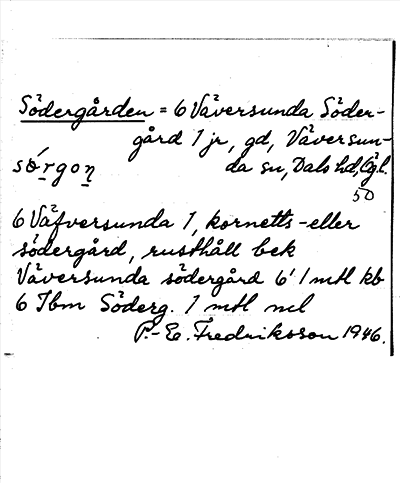 Södergården = 6 Väversunda Söder-
gård 1 jr, gd, Väversun-
sö́rgon da sn, Dals hd, Ögl.
50
6 Väfversunda 1, kornetts- eller
södergård, rusthåll bek
Väversunda södergård 6¹ 1 mtl kb
6 Jbm Söderg. 1 mtl ncl
P.-E. Fredriksson 1946.